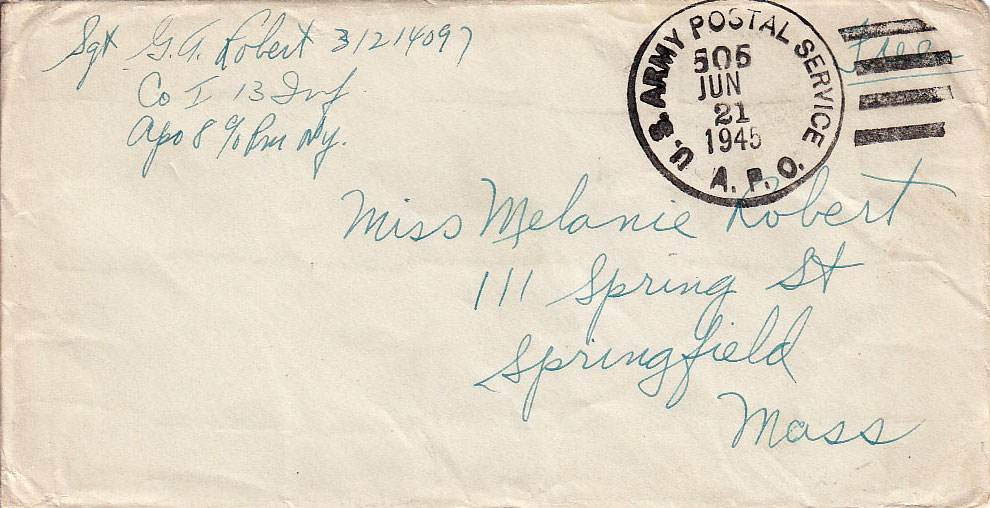 Sgt G.A. Robert 31214097
Co I 13 Inf
Apo 8 c/o Pm Ny.
U.S. ARMY POSTAL SERVICE
505
JUN
21
1945
A.P.O.
Free
Miss Melanie Robert
111 Spring St
Springfield
Mass